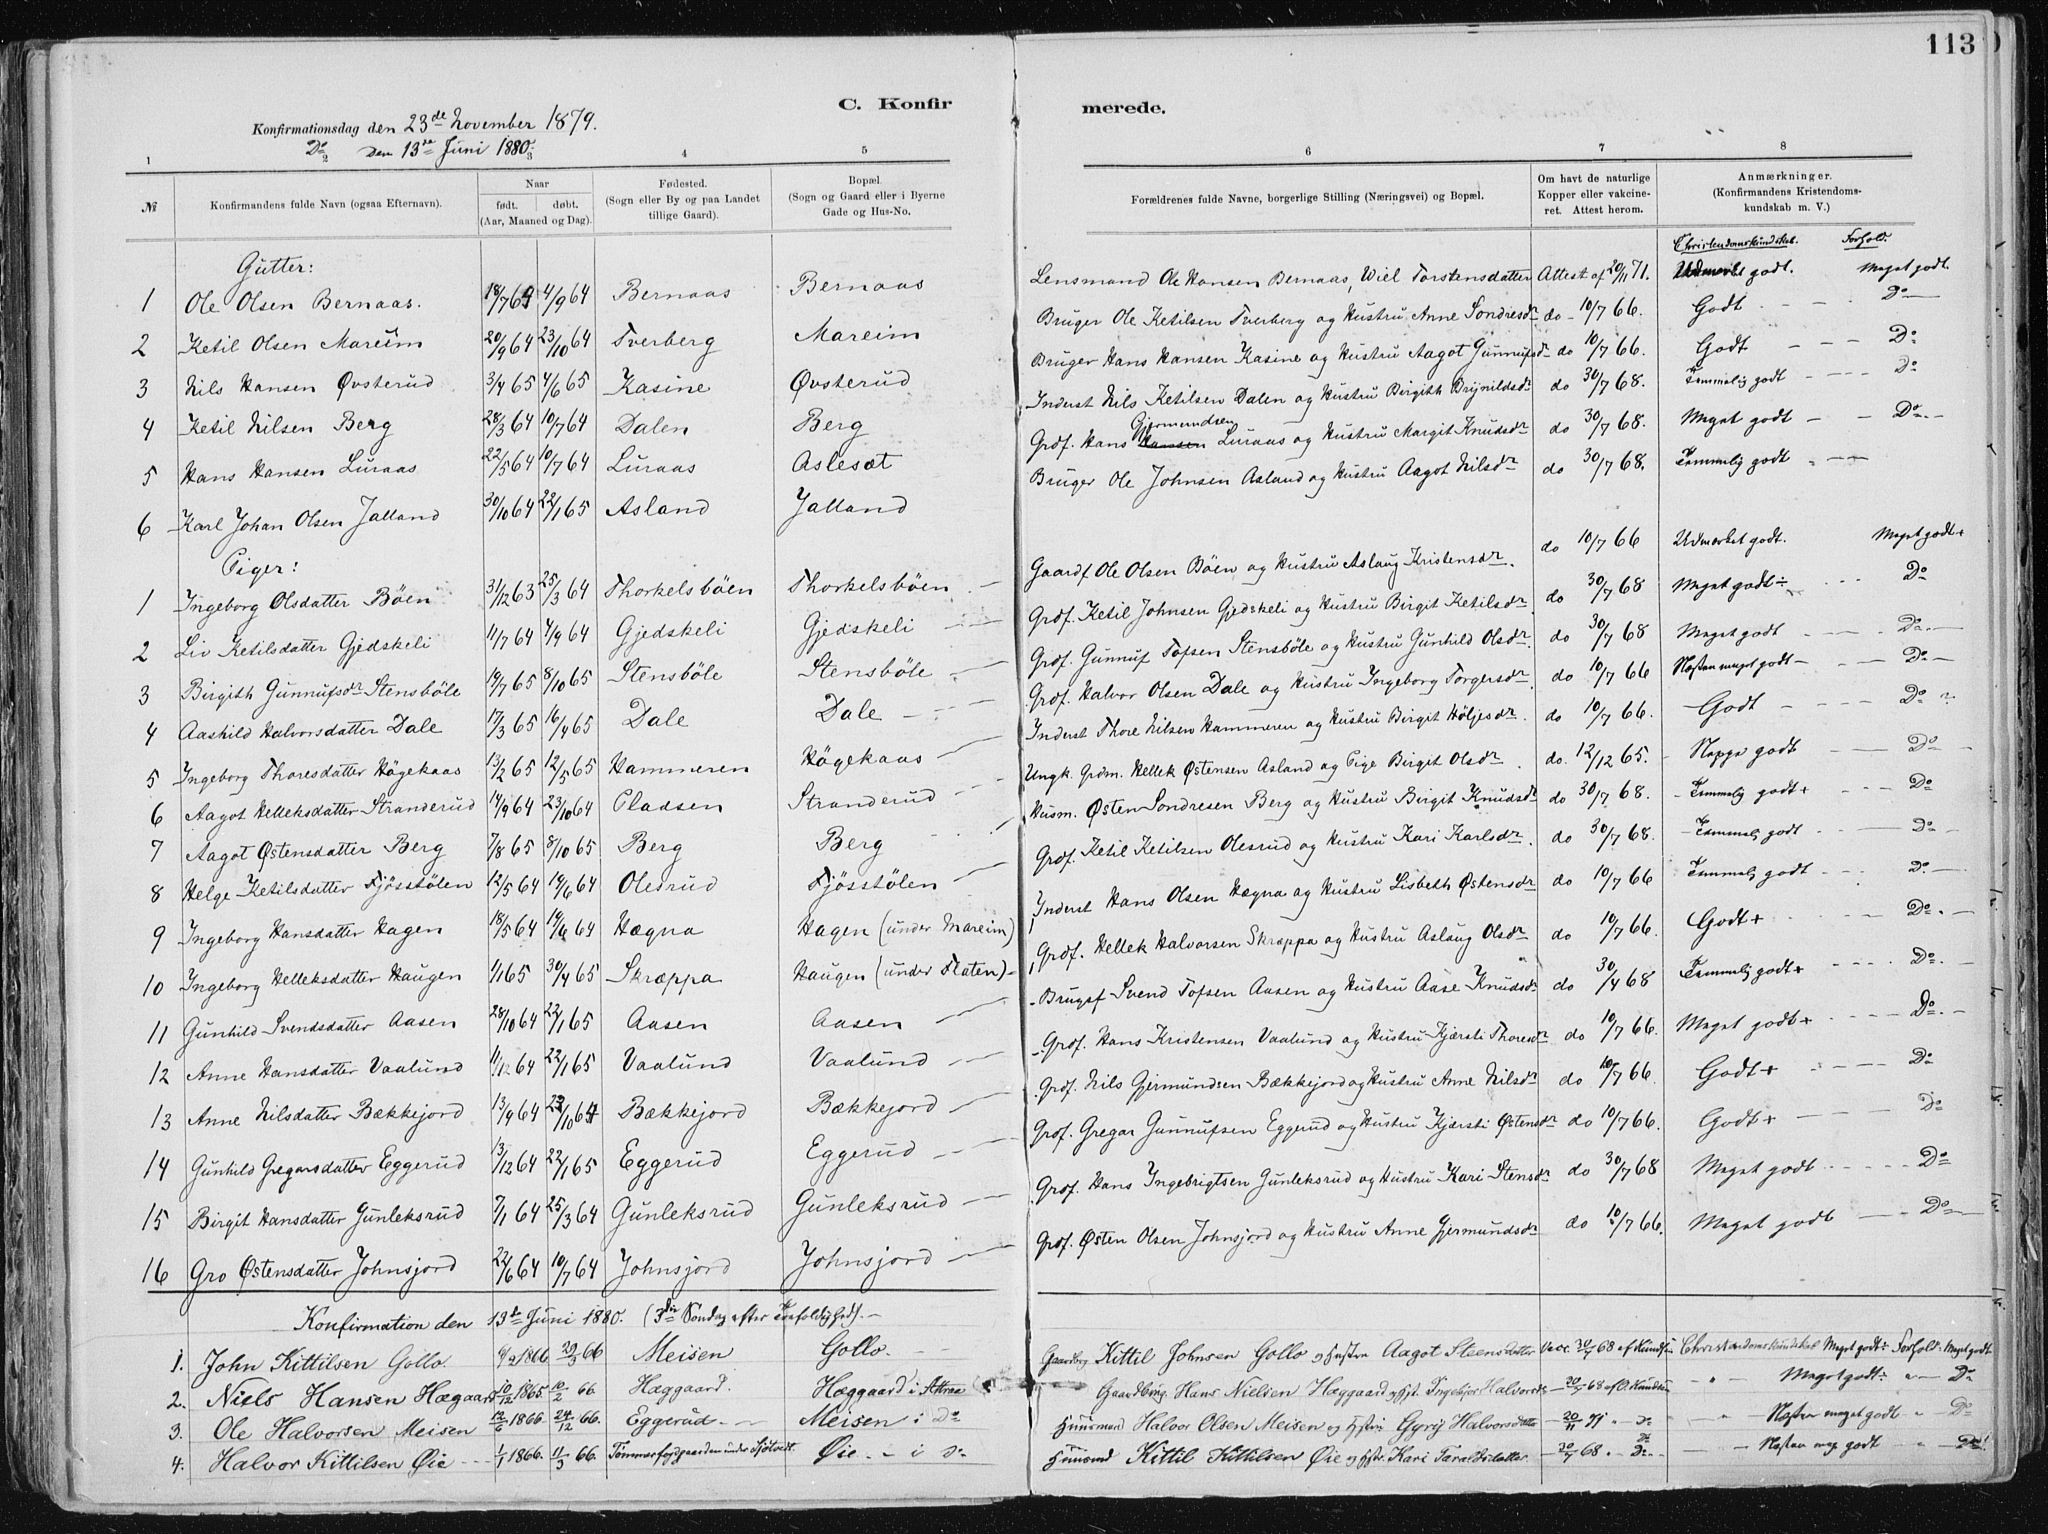 113
C. Konfirmerede.
Konfirmationsdag den 23de November 1879.
Do den 13de Juni 1880
1 2 3 4 5 6 7 8
№ Konfirmandens fulde Navn (ogsaa Efternavn). Naar født. døbt. (Aar, Maaned og Dag). Fødested. (Sogn eller By og paa Landet tillige Gaard). Bopæl. (Sogn og Gaard eller i Byerne Gade og Hus-No. Forældrenes fulde Navne, borgerlige Stilling (Næringsvei) og Bopæl. Om havt de naturlige Kopper eller vakcineret. Attest herom. Anmærkninger. (Konfirmandens Kristendomskundskab m. V.)
Christendomskundskab. Forhold.
Gutter:
1 Ole Olsen Bernaas. 18/7 64 4/9 64 Bernaas Bernaas Lensmand Ole Hansen Bernaas, Wiel Torstensdatter Attest af 20/11 71. Udmerket godt. Meget godt.
2 Ketil Olsen Mareim 20/9 64 23/10 64 Tverberg Mareim Bruger Ole Ketilsen Tverberg og Hustru Anne Sondresdr do 10/7 66. Godt Do
3 Nils Hansen Øvsterud 3/4 65 4/6 65 Kasine Øvsterud Bruger Hans Hansen Kasine og Hustru Aagot Gunnufsdr do 10/7 66. Godt Do
4 Ketil Nilsen Berg 28/3 64 10/7 64 Dalen Berg Inderst Nils Ketilsen Dalen og Hustru Birgith Brynildsdr do 30/7 68. Temmelig godt Do
5 Hans Hansen Luraas 22/5 64 10/7 64 Luraas Aslesæt Grdf. Hans Hansen Gjermundsen Luraas og Hustru Margit Knudsdr do 30/7 68. Meget godt Do
6 Karl Johan Olsen Jalland 30/10 64 22/1 65 Asland Jalland Bruger Ole Johnsen Asland og Hustru Aagot Nilsdr do 30/7 68. Temmelig godt
Piger:
1 Ingeborg Olsdatter Böen 31/12 63 25/3 64 Thorkelsböen Thorkelsböen Gaardf Ole Olsen Böen og Hustru Aslaug Kristensdr. do 10/7 66 Udmerket godt. Meget godt+
2 Liv Ketilsdatter Gjedskeli 11/7 64 4/9 64 Gjedskeli Gjedskeli Grdf. Ketil Johnsen Gjedskeli og Hustru Birgit Ketilsdr do 30/7 68 Meget godt÷ Do
3 Birgith Gunnufsdr Stensböle 19/7 65 8/10 65 Stensböle Stensböle Grdf. Gunnuf Tofsen Stensböle og Hustru Gunhild Olsdr do 30/7 68 Meget godt Do
4 Aashild Halvorsdatter Dale 17/3 65 16/4 65 Dale Dale Grdf. Halvor Olsen Dale og Hustru Ingeborg Torgersdr. do 10/7 66 Næsten meget godt Do
5 Ingeborg Thoresdatter Högekaas 13/2 65 12/5 65 Hammeren Högekaas Inderst Thore Nilsen Hammeren og Hustru Birgit Höljesdr. do 10/7 66. Godt Do
6 Aagot Helleksdatter Stranderud 14/9 64 23/10 64 Pladsen Stranderud Ungk. Grdm. Hellek Østensen Asland og Pige Birgit Olsdr. do. 12/12 65. Neppe godt Do
7 Aagot Østensdatter Berg 7/8 65 8/10 65 Berg Berg Husm. Østen Sondresen Berg og Hustru Birgit Knudsdr do 30/7 68. Temmelig godt+ Do
8 Helge Ketilsdatter Fjösstölen 12/5 64 19/6 64 Olesrud Fjösstölen Grdf. Ketil Ketilsen Olesrud og Hustru Kari Karlsdr. do 30/7 68. Temmelig godt Do
9 Ingeborg Hansdatter Hagen 18/5 64 19/6 64 Hægna Hagen (under Mareim) Inderst Hans Olsen Hægna og Hustru Lisbeth Østensdr do 10/7 66 Temmelig godt Do
10 Ingeborg Helleksdatter Haugen 1/1 65 30/4 65 Skræppa Haugen (under Flaten) Grdf. Hellek Halvorsen Skræppa og Hustru Aslaug Olsdr do 10/7 66. Godt+ Do
11 Gunhild Svendsdatter Aasen 28/10 64 22/1 65 Aasen Aasen Brugsf Svend Tofsen Aasen og Hustru Aase Knudsdr do 30/4 68 Temmelig godt+ Do
12 Anne Hansdatter Vaalund 11/12 64 22/1 65 Vaalund Vaalund Grdf. Hans Kristensen Vaalund og Hustru Kjærsti Thoresdr do 10/7 66. Meget godt+ Do
13 Anne Nilsdatter Bækkejord 13/9 64 23/10 64 Bækkejord Bækkejord Grdf. Nils Gjermundsen Bækkejord og Hustru Anne Nilsdr do 10/7 66. Godt+ Do
14 Gunhild Gregarsdatter Eggerud 13/12 64 22/1 65 Eggerud Eggerud Grdf. Gregar Gunnufsen Eggerud og Hustru Kjærsti Østensdr do 10/7 66. Godt+ Do
15 Birgit Hansdatter Gunleksrud 7/1 64 25/3 64 Gunleksrud Gunleksrud Grdf. Hans Ingebrigtsen Gunleksrud og Hustru Kari Stensdr do 30/7 68 Meget godt Do
16 Gro Østensdatter Johnsjord 22/6 64 10/7 64 Johnsjord Johnsjord Grdf. Østen Olsen Johnsjord og Hustru Anne Gjermundsdr do 10/7 66. Meget godt Do
Konfirmation den 13de Juni 1880. (3die Söndag efter Trefoldighed).
1. John Kittilsen Gollo 1866 66 Meisen Gollo. Kittil Johnsen Gollo og Hustru Aagot Steensdatter Vacc. 30/7 68 af Christendomskundskab Meget godt Forhold Meget godt
2. Niels Hansen Hægaard 10/12 1865 10/2 66. Hæggaard. Hæggaard i Attraa Gaardbrug. Hans Nielsen Hæggaard Ingebjor Halvorsdr 68 Meget godt Do
3. Ole Halvorsen Meisen 12/6 1866. 24/12 66. Eggerud Meisen i Do Huusmand Halvor Olsen Meisen og Hustru Gyro Halvorsdatter 20/11 71 do Næsten meget godt Do
4. Halvor Kittilsen Øie 1/1 1866. 11/3 66. under Øie i Do Huusmand Kittil Kittilsen Øie og Kari Taraldsdatter 68 Do Næsten meg godt Do